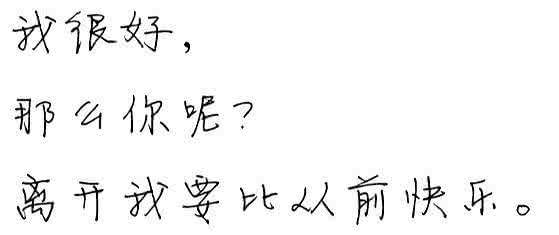 我很好，
那么你呢？
离开我要比从前快乐。